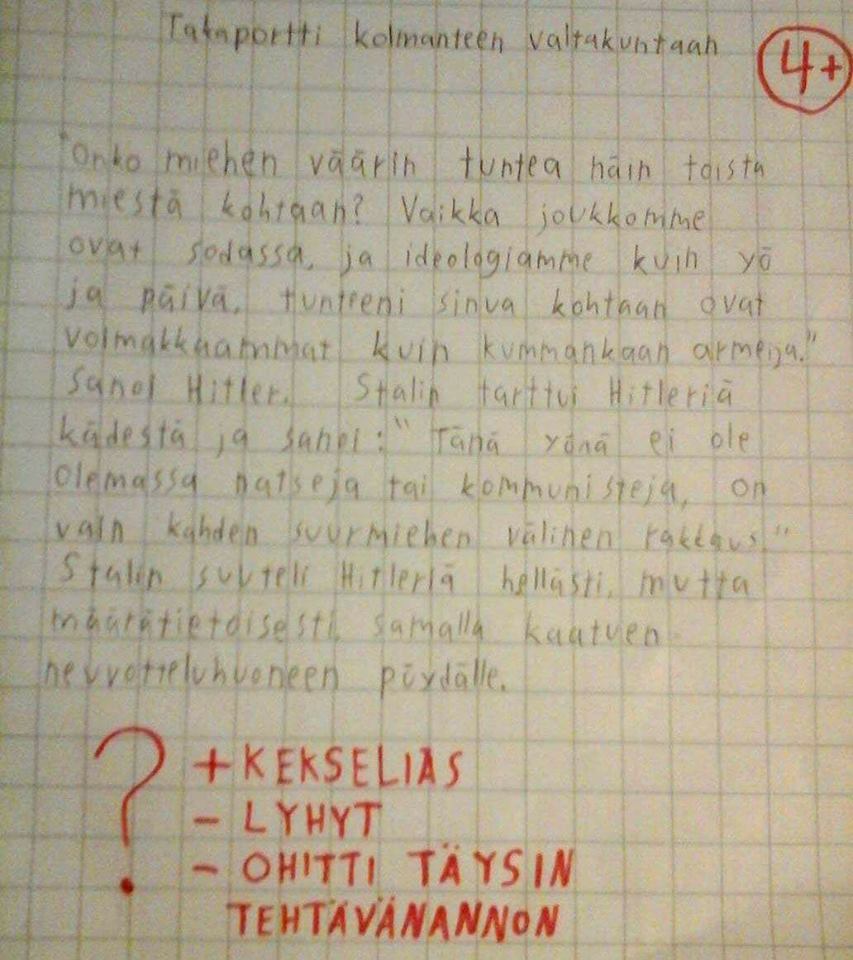 Takaportti kolmanteen valtakuntaan
4+
"Onko miehen väärin tuntea näin toista
miestä kohtaan? Vaikka joukkomme
ovat sodassa, ja ideologiamme kuin yö
ja päivä, tunteeni sinua kohtaan ovat
voimakkaammat kuin kummankaan armeija."
Sanoi Hitler. Stalin tarttui Hitleriä
kädestä ja sanoi: "Tänä yönä ei ole
olemassa natseja tai kommunisteja, on
vain kahden suurmiehen välinen rakkaus."
Stalin suuteli Hitleriä hellästi, mutta
määrätietoisesti, samalla kaatuen
neuvotteluhuoneen pöydälle.
? + KEKSELIÄS
- LYHYT
- OHITTI TÄYSIN
TEHTÄVÄNANNON